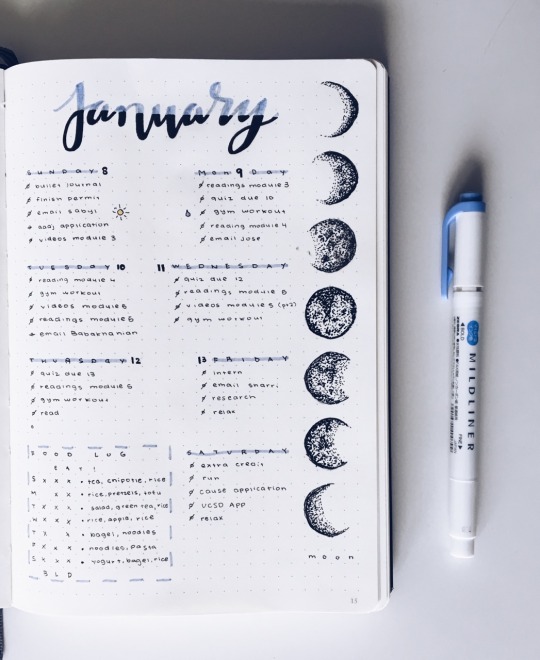 January
SUNDAY 8
bullet journal
finish permit
email sabyl
application
videos module 3
Mon 9 Day
readings module 3
quiz due 10
gym workout
reading module 4
email Jose
TUESDAY 10
reading module 4
gym workout
videos module 5
readings module 5
email Babaknanian
11 WEDNESDAY
quiz due 12
readings module 5
videos module 5 (pt2)
gym workout
THURSDAY 12
quiz due 13
readings module 5
gym workout
read
13 FRIDAY
intern
email
research
relax
FOOD LOG
EAT!
S x x x • tea, chipotle, rice
M x x • rice, pretzels, tofu
T x x x • salad, green tea, rice
W x x x • rice, apple, rice
T x x • bagel, noodles
F x x x • noodles, pasta
S x x x • yogurt, bagel, rice
BLD
SATURDAY
extra credit
run
cause application
UCSD App
relax
moon
13
MILDLINER